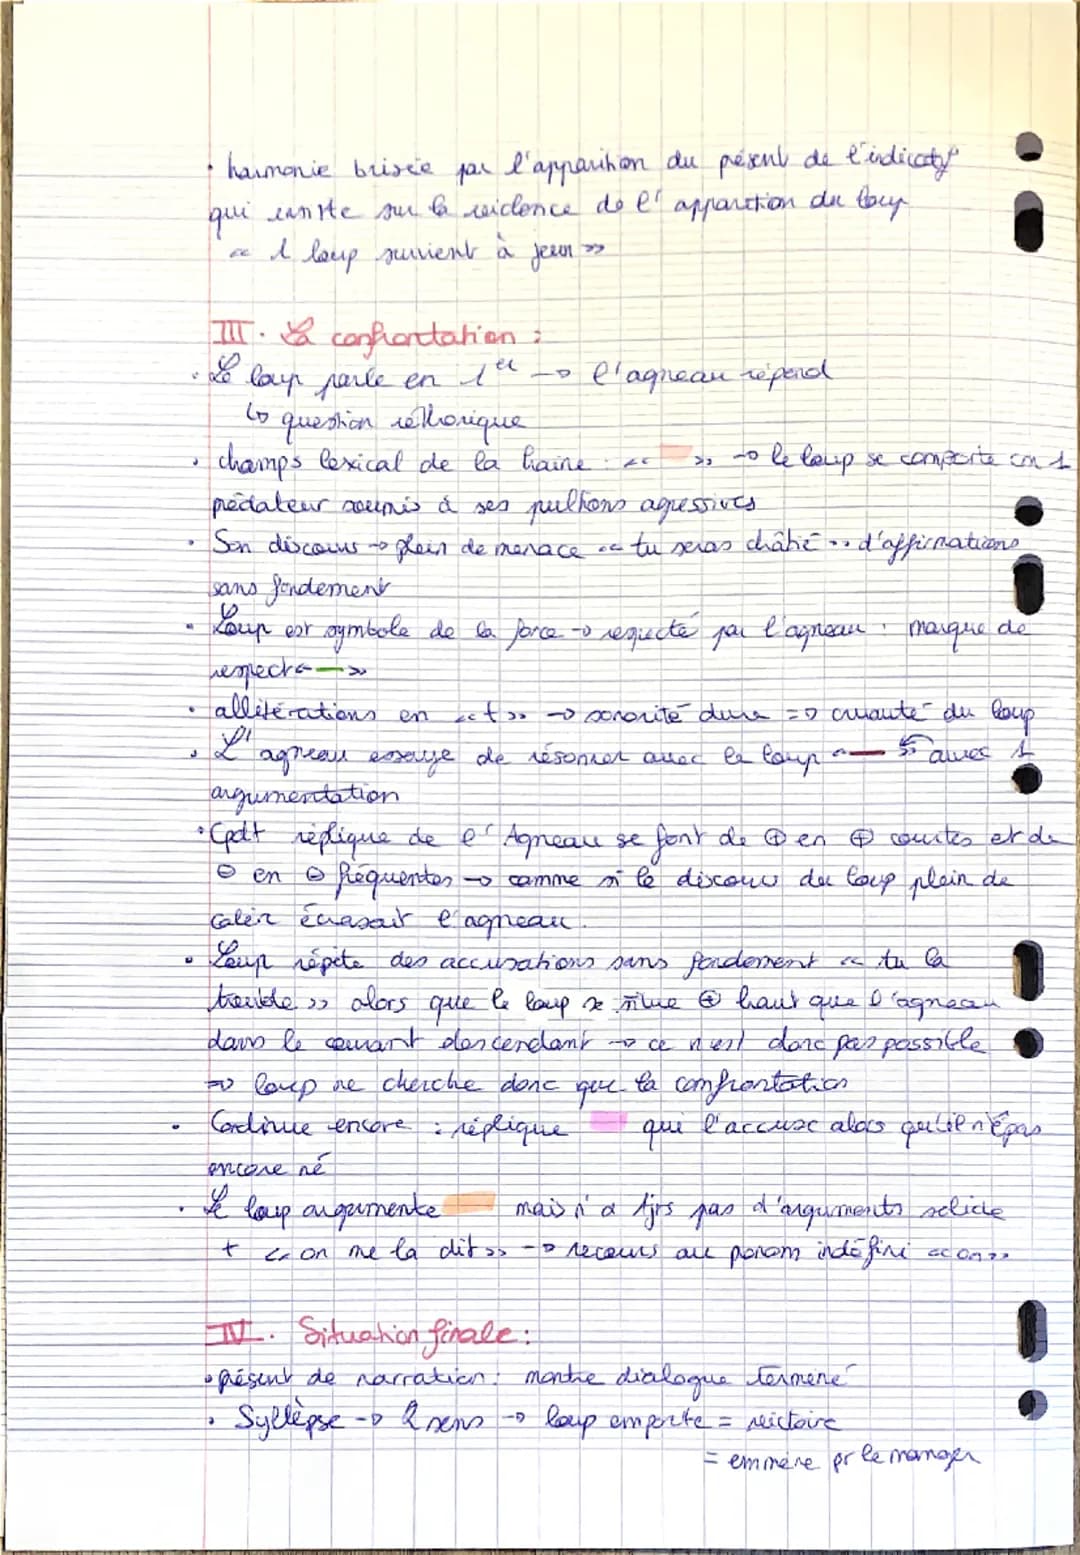 • harmonie brisée par l'apparition du présent de l'indicatif
qui insiste sur la violence de l'apparition du loup
« 1 loup survient à jeun »
III. La confrontation :
• Le loup parle en 1er → l'agneau répond
↳ question réthorique
• champs lexical de la haine : « » → le loup se comporte cm 1
prédateur soumis à ses pulsions agressives
• Son discours → plein de menace « tu seras châtié » d'affirmations
sans fondement
• Loup est symbole de la force → respecté par l'agneau : marque de
respect « — »
• allitérations en « t » → sonorité dure => cruauté du loup
• L'agneau essaye de résoner avec le loup « — » avec 1
argumentation
• Cpdt réplique de l'Agneau se font de ⊕ en ⊕ courtes et de
⊖ en ⊖ fréquentes → comme si le discour du loup plein de
colèr écrasait l'agneau.
• Loup répète des accusations sans fondement « tu la
trouble » alors que le loup se situe ⊕ haut que l'agneau
dans le courant descendant → ce n'est donc pas possible
=> loup ne cherche donc que la confrontation
• Continue encore : réplique qui l'accuse alors qu'il n'é pas
encore né
• Le loup argumente mais n'a tjrs pas d'arguments solide
+ « on me la dit » → recours au pronom indéfini « on »
IV. Situation finale :
• présent de narration : montre dialogue terminé
• Syllèpse → 2 sens → loup emporte = victoire
= emmène pr le manger